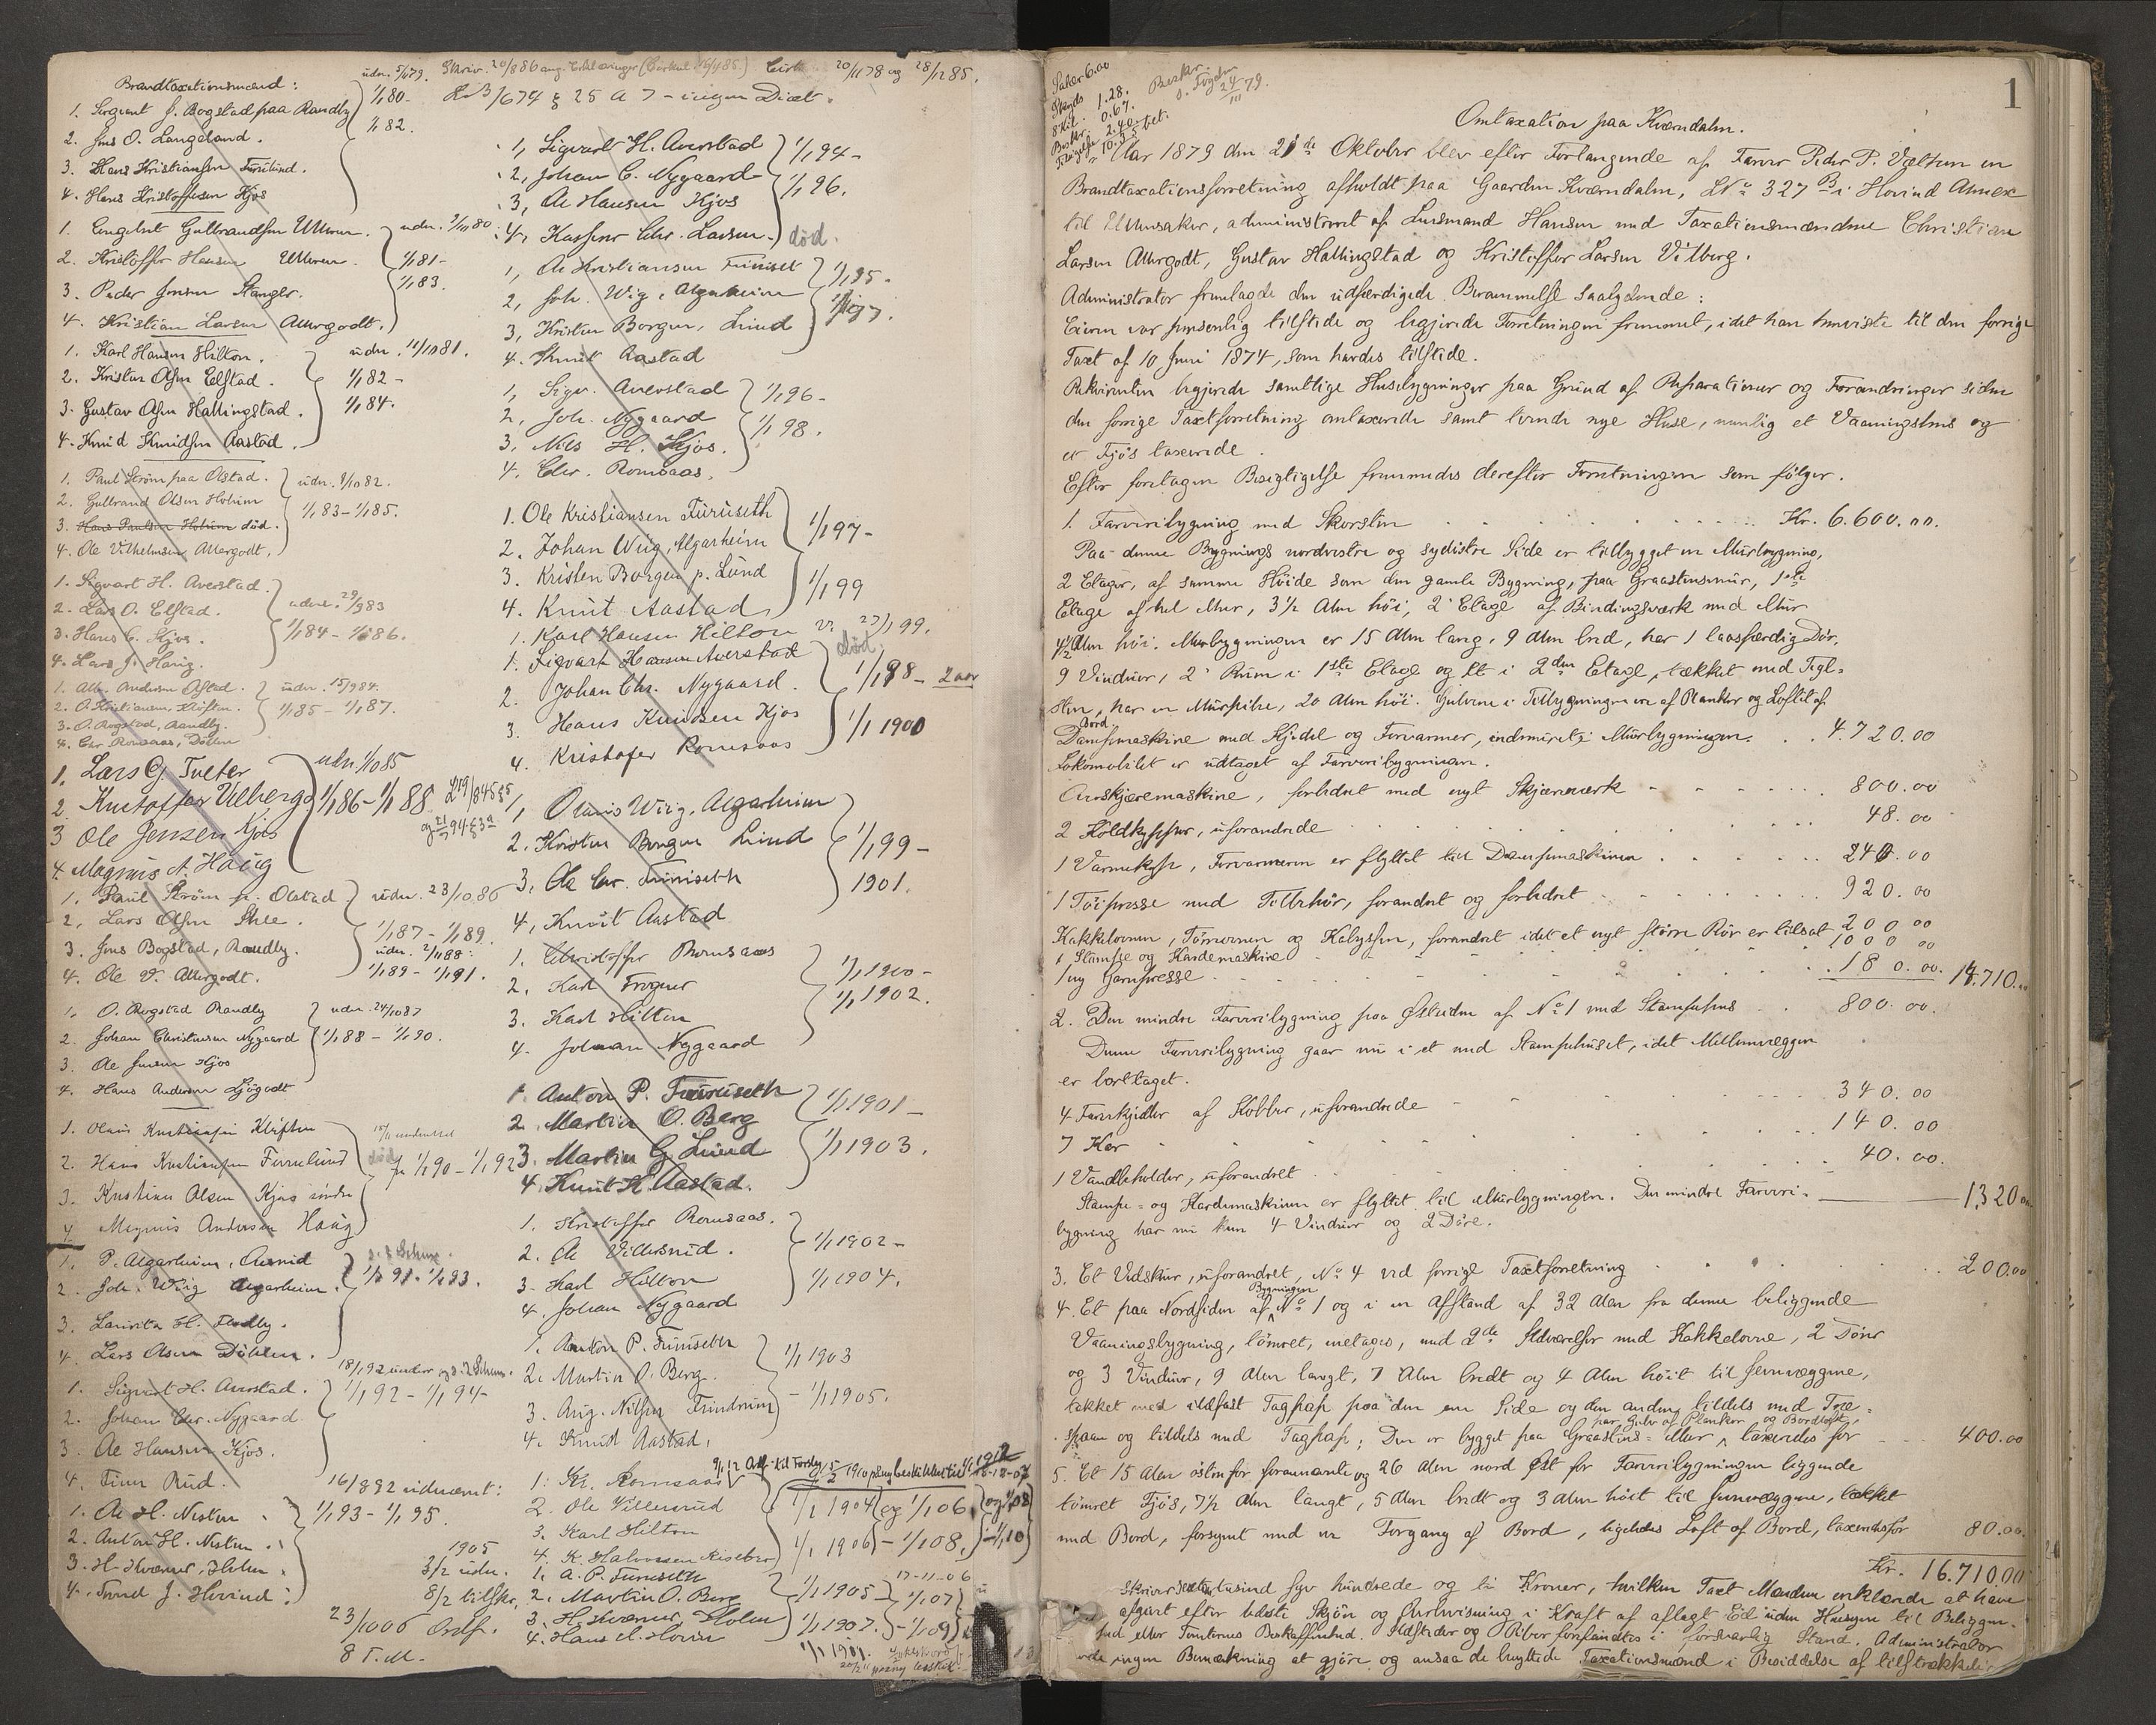 Brandtaxationsmænd:
1. Sergeant J. Bogstad paa Randby
2. Jens O. Langeland.
3. Hans Kristiansen Furulund.
4. Hans Kristoffersen Kjos
1/1 80-
1/1 82.
1. Engebret Gulbrandsen
2. Kristoffer Hansen
3. Peder Jensen Stanger.
4. Kristian Larsen Attergodt.
1/1 81-
1/1 83.
1. Karl Hansen Hilton.
2. Kristen Olsen Elstad.
3. Gustav Olsen Hallingstad.
4. Knud Knudsen Aastad.
udn. 11/10 81.
1/1 82-
1/1 84.
1. Paul Strøm paa Olstad.
2. Gulbrand Olsen Hovim
3. Hans Paulsen Hovim død.
4. Ole Vilhelmsen Attergodt.
1/1 83 - 1/1 85.
1. Sigvart H. Averstad.
2. Lars O. Elstad.
3. Hans C. Kjos.
4. Lars J. Haug.
udn. 29/9 83
1/1 84 - 1/1 86.
1. Alb. Andersen Olstad.
2. O. Kristiansen, Kløften.
3. O. Rogstad, Randby.
4. Chr. Romsaas, Døhlen
1/1 85 - 1/1 87.
1. Lars G. Tveter
2. Kristoffer Vilberg
3 Ole Jensen Kjos
4. Magnus A. Haug
udn. 1/10 85
1/1 86 - 1/1 88.
1. Paul Strøm p. Olstad
2. Lars Olsen
3. Jens Bogstad, Randby.
4. Ole V. Attergodt.
udn. 23/10 86
1/1 87 - 1/1 89.
1/1 89 - 1/1 91.
1. O. Rogstad Randby
2. Johan Christensen Nygaard
3. Ole Jensen Kjos
4. Hans Andersen Ljøgodt
udn. 24/10 87
1/1 88 - 1/1 90.
1. Olaus Kristiansen Kløften
2. Hans Kristiansen Furulund
3. Kristian Olsen Kjos søndre
4. Magnus Andersen Haug
1/1 90 - 1/1 92
1. P. Algarheim,
2. Joh. Wiig Algarheim.
3. Lauritz H.
4. Lars Olsen Døhlen.
1/1 91 - 1/1 93.
1. Sigvart H. Averstad.
2. Johan Chr. Nygaard.
3. Ole Hansen Kjos.
4. Finn Rud.
1/1 92 - 1/1 94-
1. Ole H. Nesten
2. Anton H. Nesten.
3. H. Kværner, Holm.
4. J. Hovind.
16/8 92 udnævnt:
1/1 93 - 1/1 95.
1, Sigvart H. Averstad
2, Johan C. Nygaard
3, Ole Hansen Kjos
4, Kasper Chr. Larsen. død.
1/1 94-
1/1 96.
1, Ole Kristiansen Furuset
2, Joh. Wiig, Algarheim
3, Kristen Borgen, Lund
4. Knut Aastad
1/1 95-
1, Sigv. Averstad
2, Joh. Nygaard
3, Nils H. Kjos.
4. Chr. Romsaas.
1/1 96-
1/1 98.
1. Ole Kristiansen Furuseth
2. Johan Wiig, Algarheim
3. Kristen Borgen p. Lund
4. Knut Aastad
1/1 97-
1/1 99
1. Karl Hansen Hilton
1. Sigvart Hansen Averstad død
2. Johan Chr. Nygaard.
3. Hans Knudsen Kjos
4. Kristofer Romsaas
1/1 98- 2 aar
1/1 1900
1, Olaus Wiig, Algarheim
2. Kristen Borgen Lund
3, Ole Chr. Furuseth
4, Knut Aastad
1/1 99-
1901.
1. Christoffer Romsaas
2. Karl Frogner
3. Karl Hilton
4. Johan Nygaard
1/1 1900-
1/1 1902.
1. Anton P. Furuseth
2. Martin O. Berg
3. Martin G. Lund
4. Knut K. Aastad.
1/1 1901-
1/1 1903.
1. Kristoffer Romsaas.
2. Ole Villersrud.
3. Karl Hilton
4. Johan Nygaard
1/1 1902-
1/1 1904.
1. Anton P. Furuseth
2. Martin O. Berg.
3. Aug. Nilsen
4. Knud Aastad.
1/1 1903
- 1/1 1905.
1. Kr. Romsaas
2. Ole Villersrud
3. Karl Hilton
4. K. Halvorsen
1/1 1904 og 1/1 06
1/1 1906 - 1/1 08.
1. A. P. Furuseth
2. Martin O. Berg
3. H. Kværner, Holm
4. Hans M. Hovin
1/1 1905 - 1/1 07
1/1 1907. - 1/1 09
1
Omtaxation paa Kværndalen.
Aar 1879 den 21de Oktober blev efter Forlangende af Farver Peder P. Væltun en
Brandtaxationsforretning afholdt paa Gaarden Kværndalen, LNo 327 B i Hovind Annex
til Ullensaker, administreret af Lensmand Hansen med Taxationsmændene Christian
Larsen Attergodt, Gustav Hallingstad og Kristoffer Larsen Vilberg.
Administrator fremlagde den udfærdigede Berammelse saalydende:
Eieren var personlig tilstede og begjærede Forretningen fremmet, idet han henviste til den forrige
Taxt af 10 Juni 1874, som havdes tilstede.
Rekvirenten begjærede samtlige Husebygninger paa Grund af Reparationer og Forandringer siden
den forrige Taxtforretning omtaxerede samt tvende nye Huse, nemlig et Vaaningshus og
et Fjøs taxerede.
Efter foretagen Besigtigelse fremmedes derefter Forretningen som følger.
1. Farveribygning med Skorsten Kr. 6.600.00.
Paa denne Bygnings nordvestre og sydøstre Side er tilbygget en Murbygning,
2 Etager, af samme Høide som den gamle Bygning, paa Graastensmur, 1ste
Etage af hel Mur, 3 1/2 Alen høi, 2 Etage af Bindingsværk med Mur
4 1/2 Alen høi. Murbygningen er 15 Alen lang, 9 Alen bred, har 1 laasfærdig Dør,
9 Vinduer, 2 Rum i 1ste Etage og Et i 2den Etage, tækket med Tegl-
sten, har en Murpibe, 20 Alen høi. Gulvene i Tilbygningen er af Planker og Loftet af
Bord
Dampmaskine med Kjedel og Forvarmer, indmuret i Murbygningen. 4.720.00
Lokomobilet er udtaget af Farveribygningen.
Overskjæremaskine, forbedret med nyt Skjæreværk 800.00
2 Koldkypper, uforandrede 48.00
1 Varmekype, Forvarmeren er flyttet til Dampmaskinen 240.00
1 Tøipresse med Tilbehør, forandret og forbedret 920.00
Kakkelovnen, Tørreovnen og Kabyssen, forandret idet et nyt større Rør er tilsat 200 00
1 Stampe og Kardemaskine 1000 00
1 ny Garnpresse 180.00. 14.710.00
2. Den mindre Farveribygning paa Østsiden af No 1 med Stampehus 800.00.
Denne Farveribygning gaar nu i et med Stampehuset, idet Mellemvæggen
er borttaget.
4 Farvekjedler af Kobber, uforandrede 340.00
7 Kar 140.00
1 Vandbeholder, uforandret 40.00.
Stampe- og Kardemaskinen er flyttet til Murbygningen. Den mindre Farveri- 1320.00
bygning har nu kun 4 Vinduer og 2 Døre.
3. Et Vedskur, uforandret, No 4 ved forrige Taxtforretning 200.00
4. Et paa Nordsiden af Bygningen No 1 og i en Afstand af 32 Alen fra denne beliggende
Vaaningsbygning, tømret, enetages, med 2de Værelser med Kakkelovne, 2 Døre
og 3 Vinduer, 9 Alen langt, 7 Alen bredt og 4 Alen høit til Jevnvæggene,
tækket med ildfast Tagpap paa den ene Side og den anden tildels med Træ-
har Gulv af Planker og Bordloft,
spaan og tildels med Tagpap; Den er bygget paa Graastens-Mur, taxeredes for 400.00
5. Et 15 Alen østenfor forannævnte og 26 Alen nord Øst for Farveribygningen liggende
tømret Fjøs, 7 1/2 Alen langt, 5 Alen bredt og 3 Alen høit til Jevnvæggene, tækket
med Bord, forsynet med en Forgang af Bord, ligeledes Loft af Bord, taxeredes for 80.00.
Kr. 16.710.00
Skriver Sextentusind syv hundrede og ti Kroner, hvilken Taxt Mændene erklærede at have
afgivet efter bedste Skjøn og Overbevisning i Kraft af aflagt Eed uden Hensyn til Beliggen-
hed eller Tomternes Beskaffenhed. Ildsteder og Piber forefandtes i forsvarlig Stand. Administrator
havde ingen Bemærkning at gjøre og ansaa de benyttede Taxationsmænd i Besiddelse af tilstrækkelig